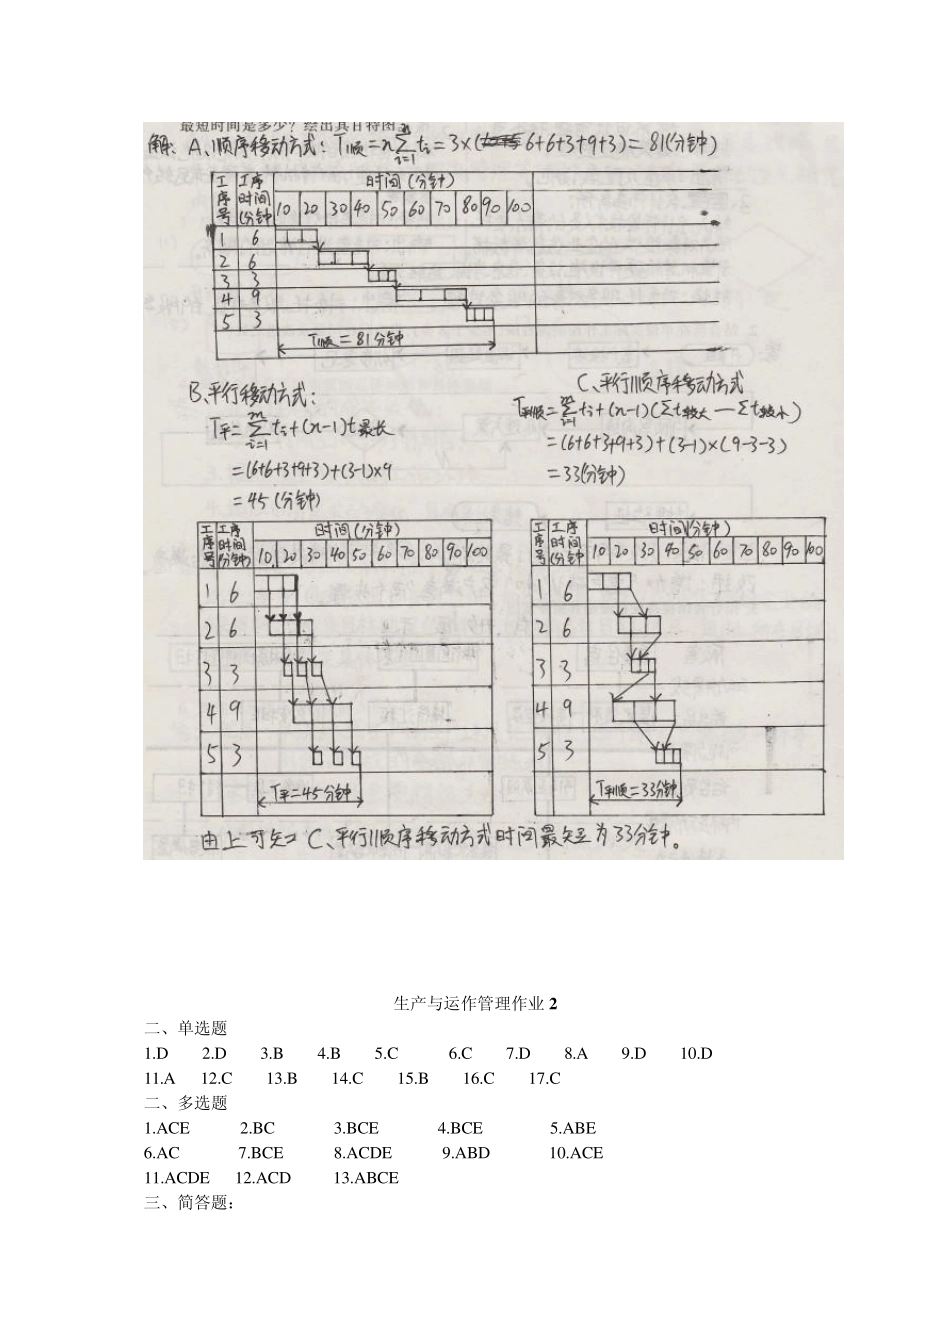 最短时间是多少？绘出其甘特图。
解：A、顺序移动方式：T顺=n∑ti=3×(6+6+3+9+3)=81(分钟)
m
i=1
工序号 工序时间(分钟) 时间(分钟)
10 20 30 40 50 60 70 80 90 100
1 6
2 6
3 3
4 9
5 3
T顺=81分钟
B、平行移动方式：
T平=∑ti+(n-1)t最长
m
i=1
=(6+6+3+9+3)+(3-1)×9
=45(分钟)
C、平行顺序移动方式
T平顺=∑ti+(n-1)(∑t较大—∑t较小)
m
i=1
=(6+6+3+9+3)+(3-1)×(9-3-3)
=33(分钟)
工序号 工序时间(分钟) 时间(分钟)
10 20 30 40 50 60 70 80 90 100
1 6
2 6
3 3
4 9
5 3
T平=45分钟
工序号 工序时间(分钟) 时间(分钟)
10 20 30 40 50 60 70 80 90 100
1 6
2 6
3 3
4 9
5 3
T平顺=33分钟
由上可知 C、平行顺序移动方式时间最短为33分钟。
生产与运作管理作业 2
二、单选题
1.D 2.D 3.B 4.B 5.C 6.C 7.D 8.A 9.D 10.D
11.A 12.C 13.B 14.C 15.B 16.C 17.C
二、多选题
1.ACE 2.BC 3.BCE 4.BCE 5.ABE
6.AC 7.BCE 8.ACDE 9.ABD 10.ACE
11.ACDE 12.ACD 13.ABCE
三、简答题：